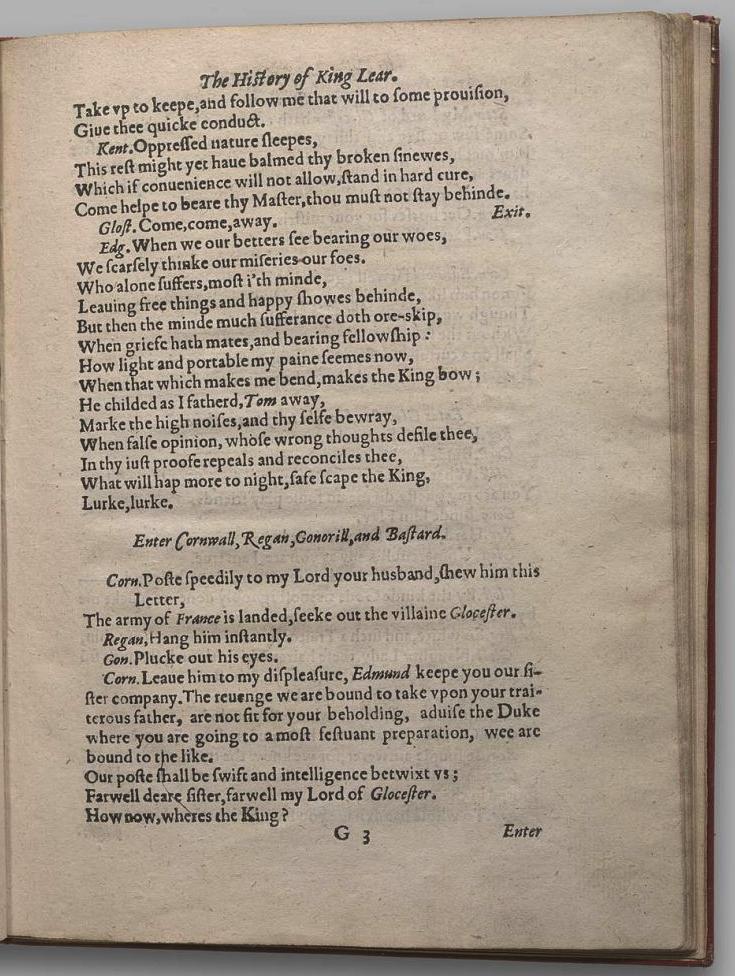 The Hiſtory of King Lear.
Take vp to keepe,and follow me that will to ſome prouiſion,
Giue thee quicke conduct.
Kent.Oppreſſed nature ſleepes,
This reſt might yet haue balmed thy broken ſinewes,
Which if conuenience will not allow,ſtand in hard cure,
Come helpe to beare thy Maſter,thou muſt not ſtay behinde.
Gloſt.Come,come,away. Exit.
Edg.When we our betters ſee bearing our woes,
We ſcarſely thinke our miſeries our foes.
Who alone ſuffers,moſt i'th minde,
Leauing free things and happy ſhowes behinde,
But then the minde much ſufferance doth ore-skip,
When griefe hath mates,and bearing fellowſhip:
How light and portable my paine ſeemes now,
When that which makes me bend,makes the King bow;
He childed as I fatherd,Tom away,
Marke the high noiſes,and thy ſelfe bewray,
When falſe opinion, whoſe wrong thoughts defile thee,
In thy iuſt proofe repeals and reconciles thee,
What will hap more to night,ſafe ſcape the King,
Lurke,lurke.
Enter Cornwall,Regan,Gonorill,and Baſtard.
Corn.Poſte ſpeedily to my Lord your husband,ſhew him this
Letter,
The army of France is landed,ſeeke out the villaine Gloceſter.
Regan,Hang him inſtantly.
Gon.Plucke out his eyes.
Corn.Leaue him to my diſpleaſure, Edmund keepe you our ſi-
ſter company.The reuenge we are bound to take vpon your trai-
terous father, are not fit for your beholding, aduiſe the Duke
where you are going to a moſt feſtuant preparation, wee are
bound to the like.
Our poſte ſhall be ſwift and intelligence betwixt vs;
Farwell deare ſiſter,farwell my Lord of Gloceſter.
How now,wheres the King?
G 3 Enter